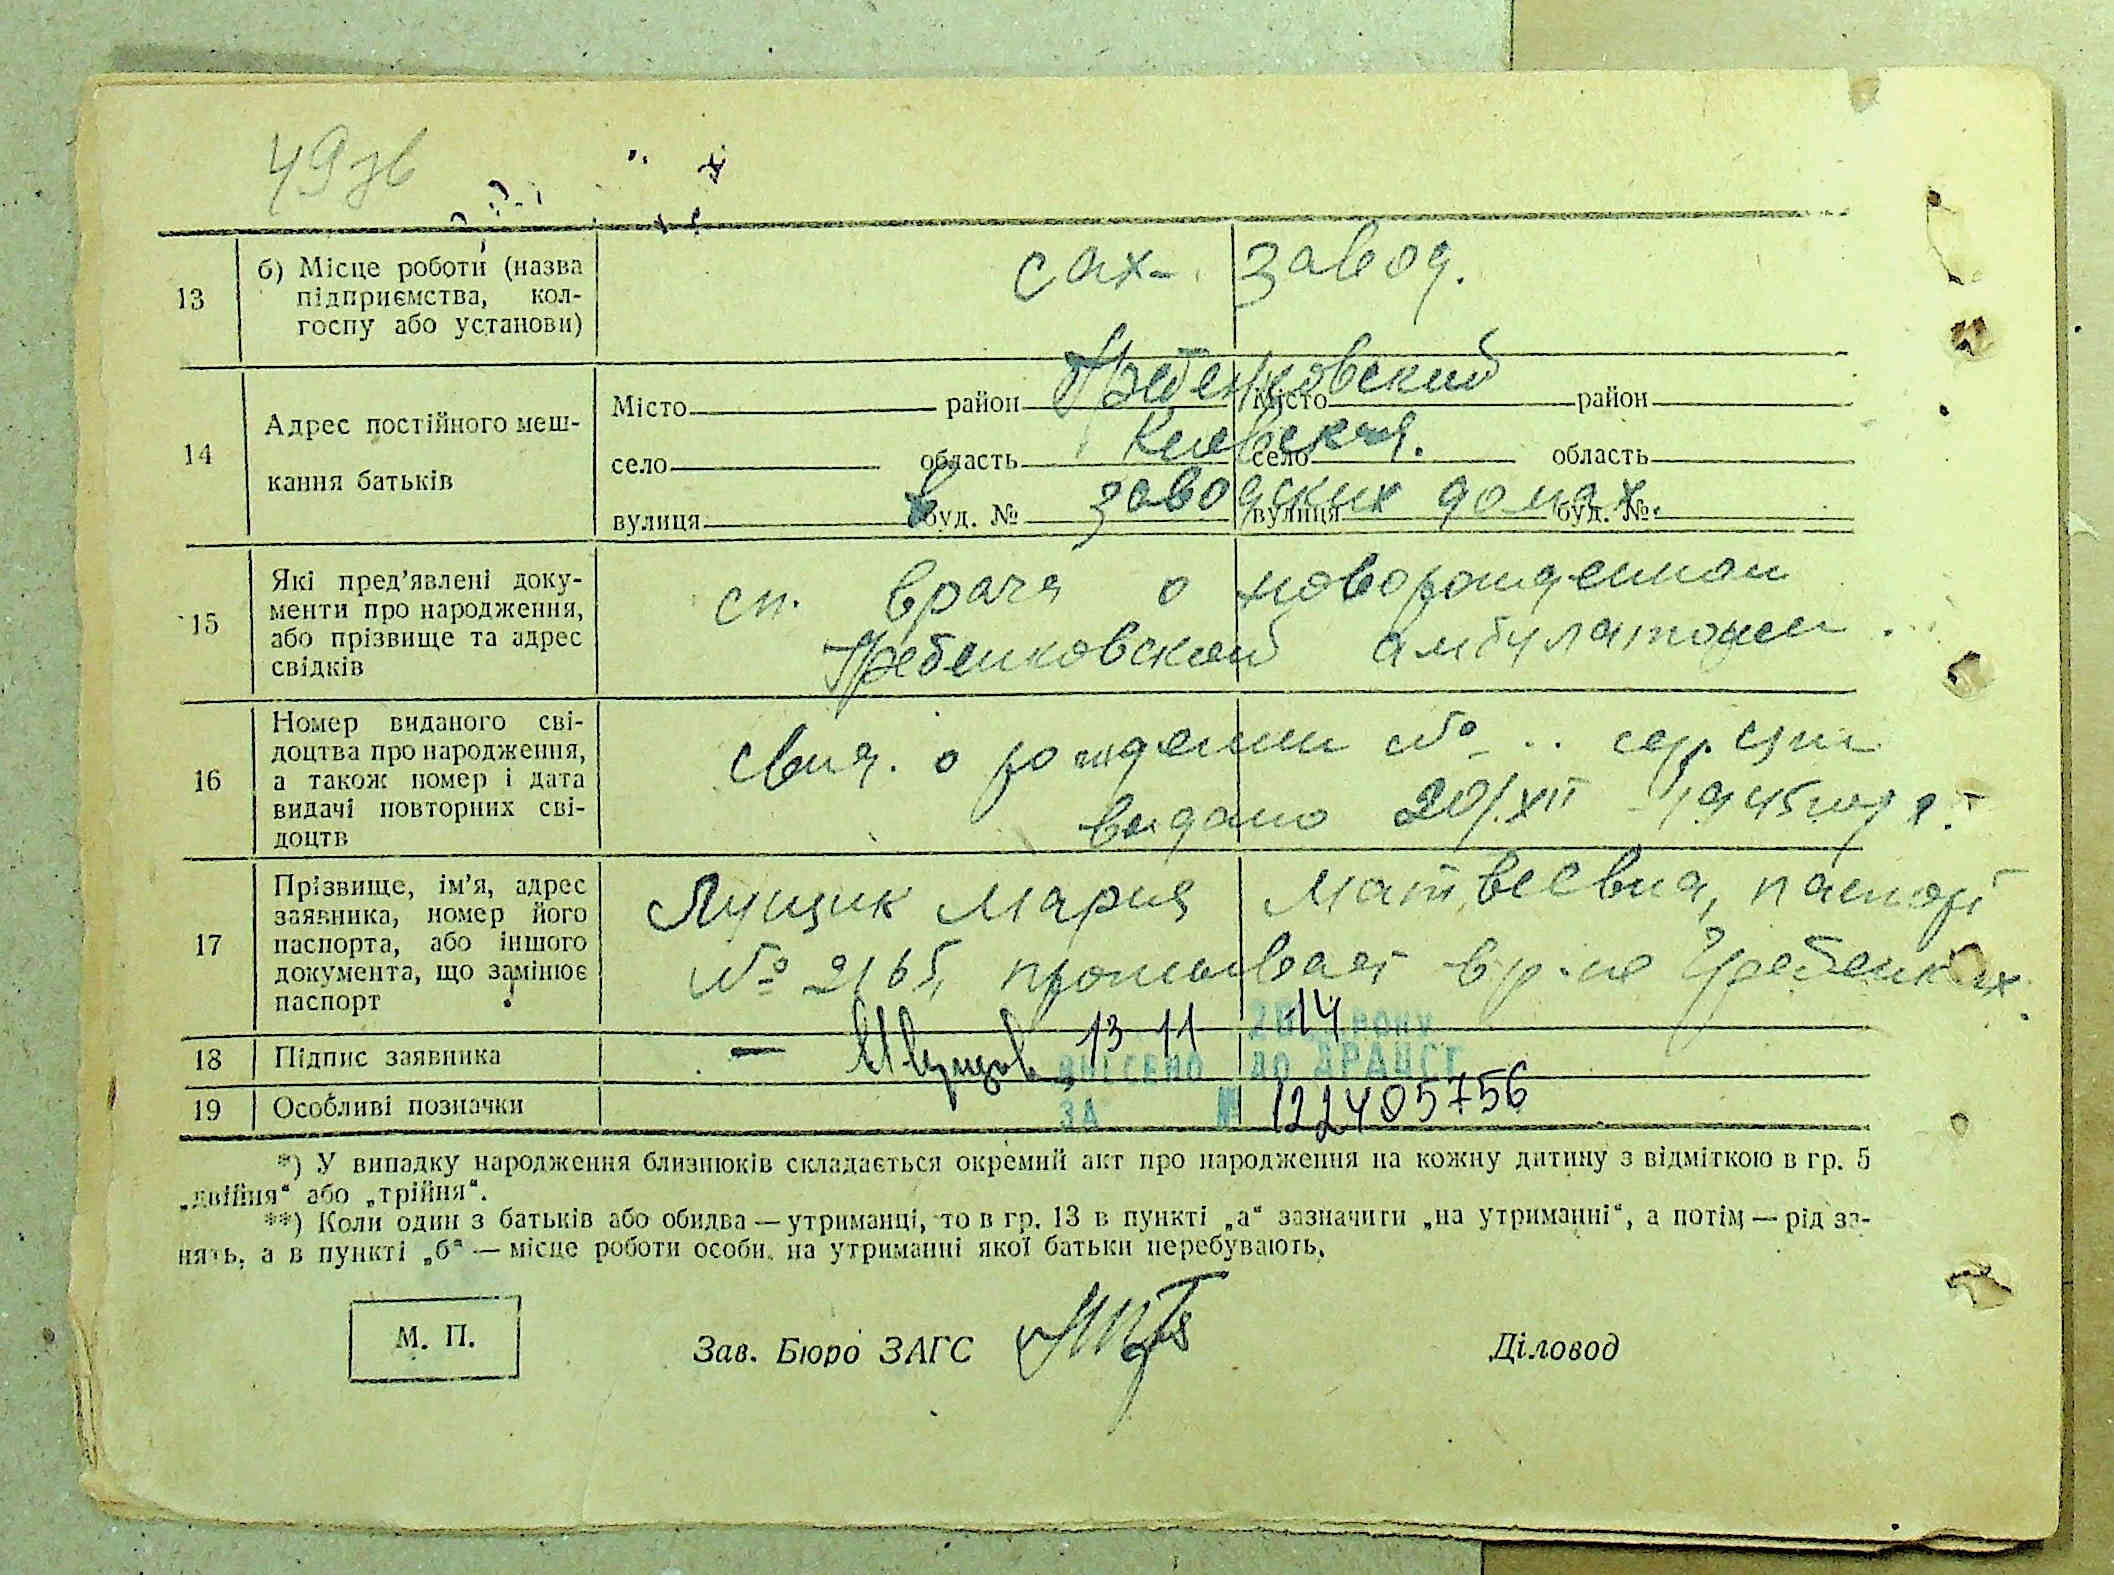 49зв
13 б) Місце роботи (назва підприємства, кол-
госпу або установи)
сах- завод.
14 Адрес постійного меш-
кання батьків
Місто район Гребенковский Місто район
село область Киевская. село область
вулиця буд. № в заводских домах. вулиця буд. №
15 Які пред’явлені доку-
менти про народження,
або прізвище та адрес
свідків
сп. врача о новорожденном
Гребенковской амбулатории
16 Номер виданого сві-
доцтва про народження,
а також номер і дата
видачі повторних сві-
доцтв
свид. о рождении №
выдано 20/XII 1945 года.
17 Прізвище, ім’я, адрес
заявника, номер його
паспорта, або іншого
документа, що замінює
паспорт
Лущик Мария Матвеевна, паспорт
№ 2165, проживает в р-не Гребенках
18 Підпис заявника
13 11 2014 РОКУ
ВНЕСЕНО ДО ДРАЦСГ
19 Особливі позначки
ЗА № 122405756
*) У випадку народження близнюків складається окремий акт про народження на кожну дитину з відміткою в гр. 5
„двійня“ або „трійня“.
**) Коли один з батьків або обидва — утриманці, то в гр. 13 в пункті „а“ зазначити „на утриманні“, а потім — рід за-
нять, а в пункті „б“ — місце роботи особи, на утриманні якої батьки перебувають.
М. П.
Зав. Бюро ЗАГС
Діловод